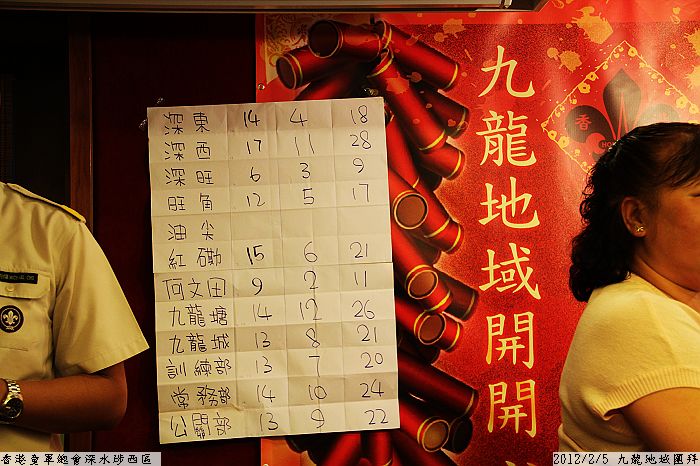 深東 14 4 18
深西 17 11 28
深旺 6 3 9
旺角 12 5 17
油尖
紅磡 15 6 21
何文田 9 2 11
九龍塘 14 12 26
九龍城 13 8 21
訓練部 13 7 20
常務部 14 10 24
公關部 13 9 22
九龍地域開開
香
香港童軍總會深水埗西區
2012/2/5 九龍地域團拜